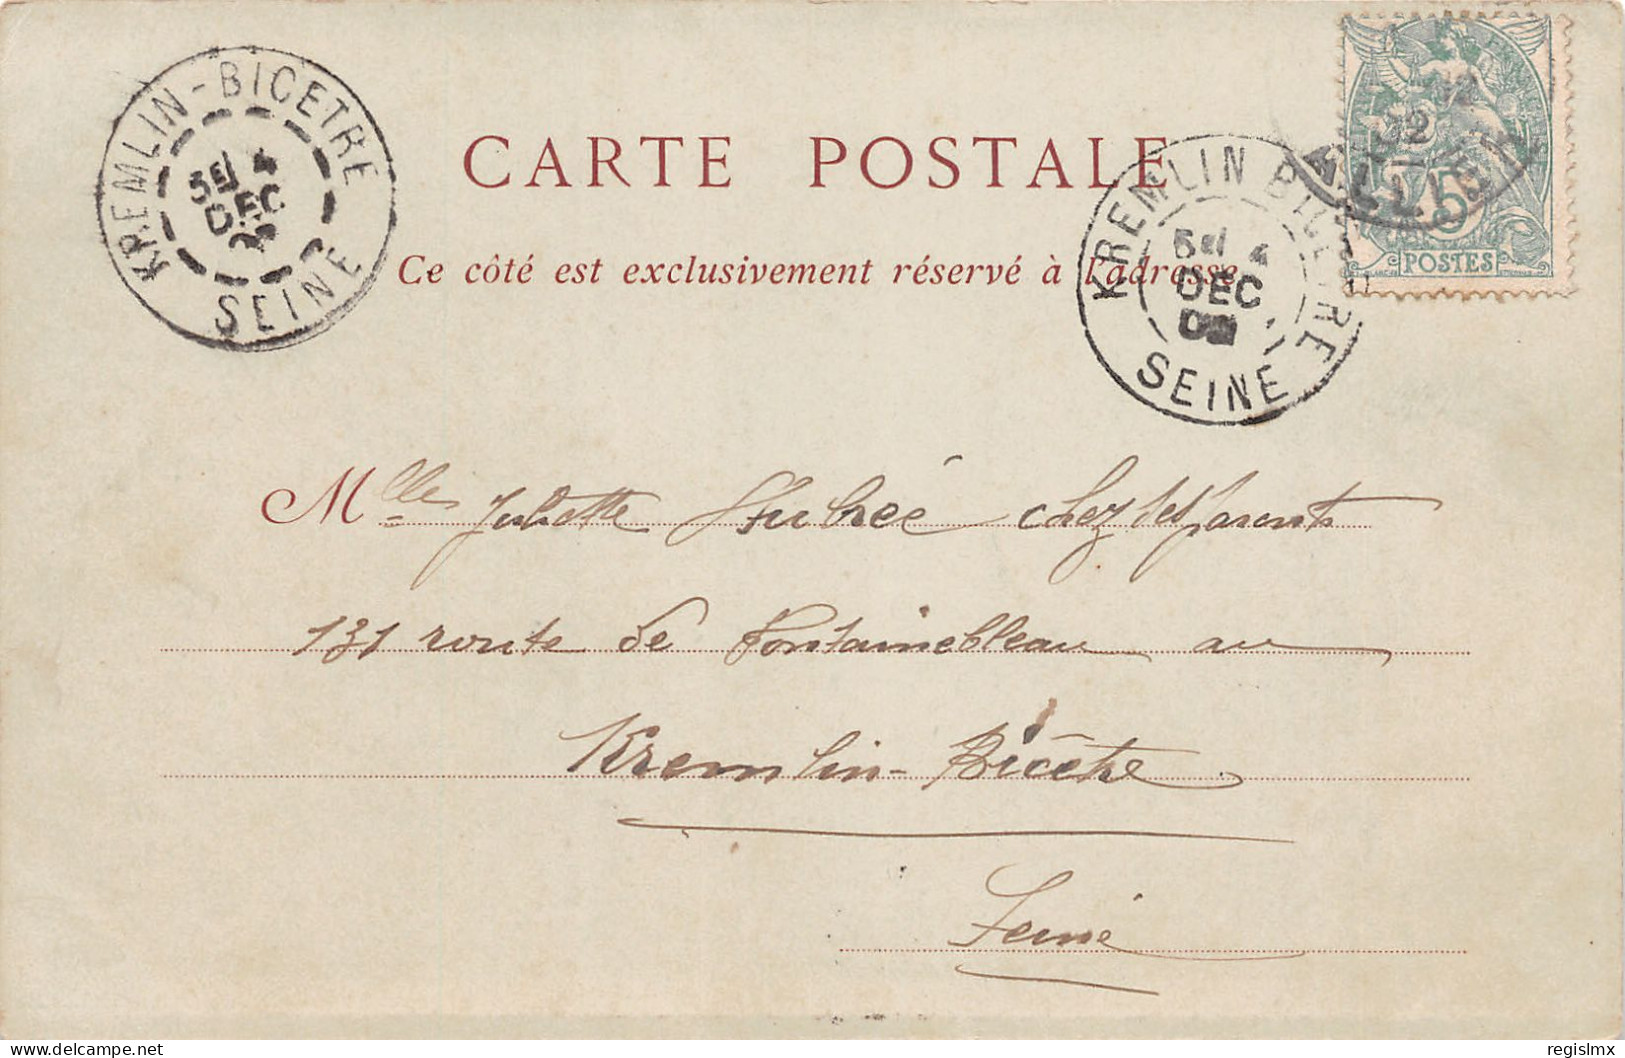 KREMLIN-BICETRE
5E/ 4
DEC
SEINE
CARTE POSTALE
Ce côté est exclusivement réservé à l'adresse
KREMLIN BICETRE
5E/ 4
DEC
SEINE
12
5
POSTES
Mlle Juliette Aubrée chez ses parents
131 route de Fontainebleau au
Kremlin-Bicêtre
Seine
delcampe.net
regislmx